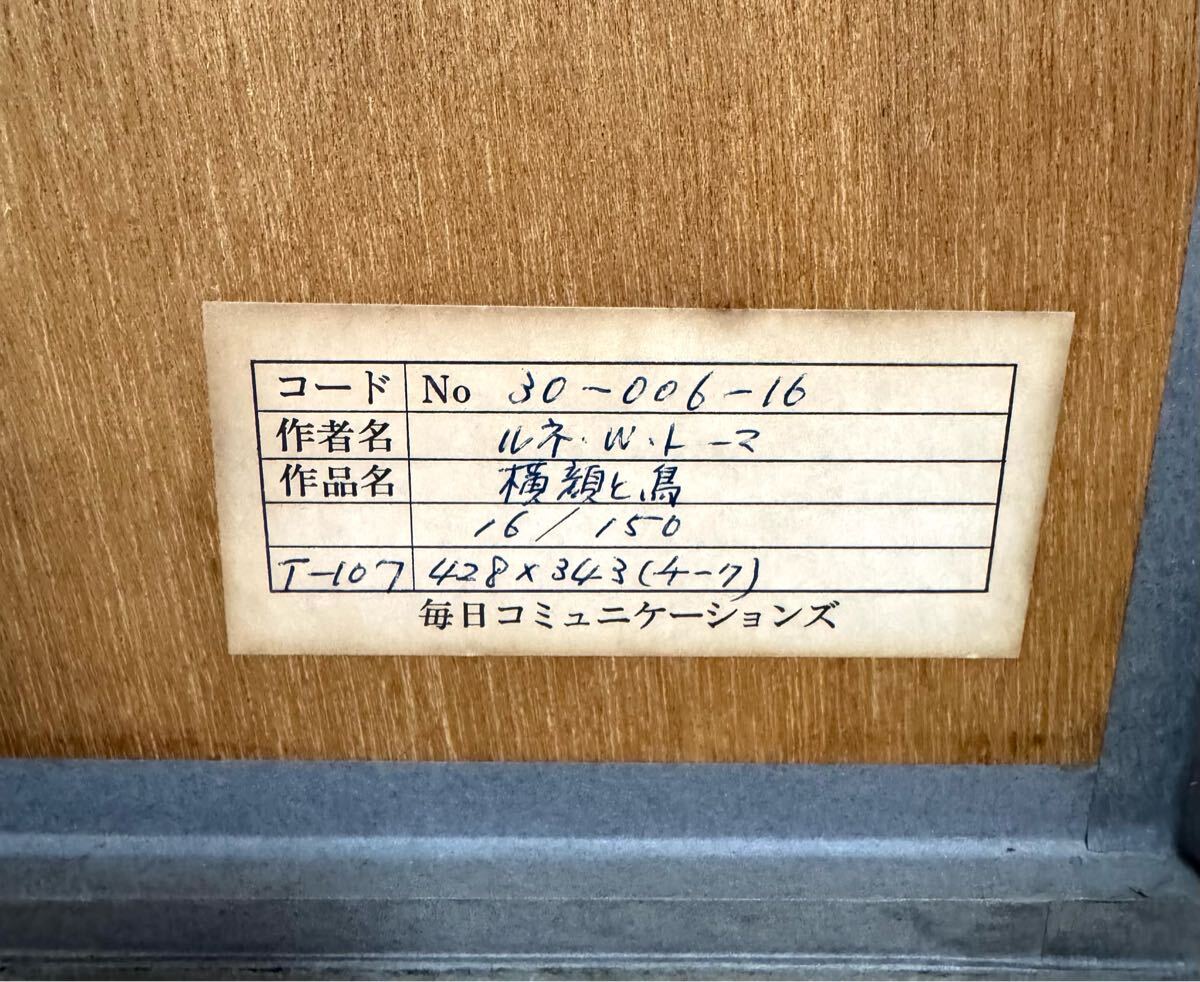 コード No 30-006-16
作者名 ルネ・W・トーマ
作品名 横顔と鳥
16/150
T-107 428×343(4-7)
毎日コミュニケーションズ